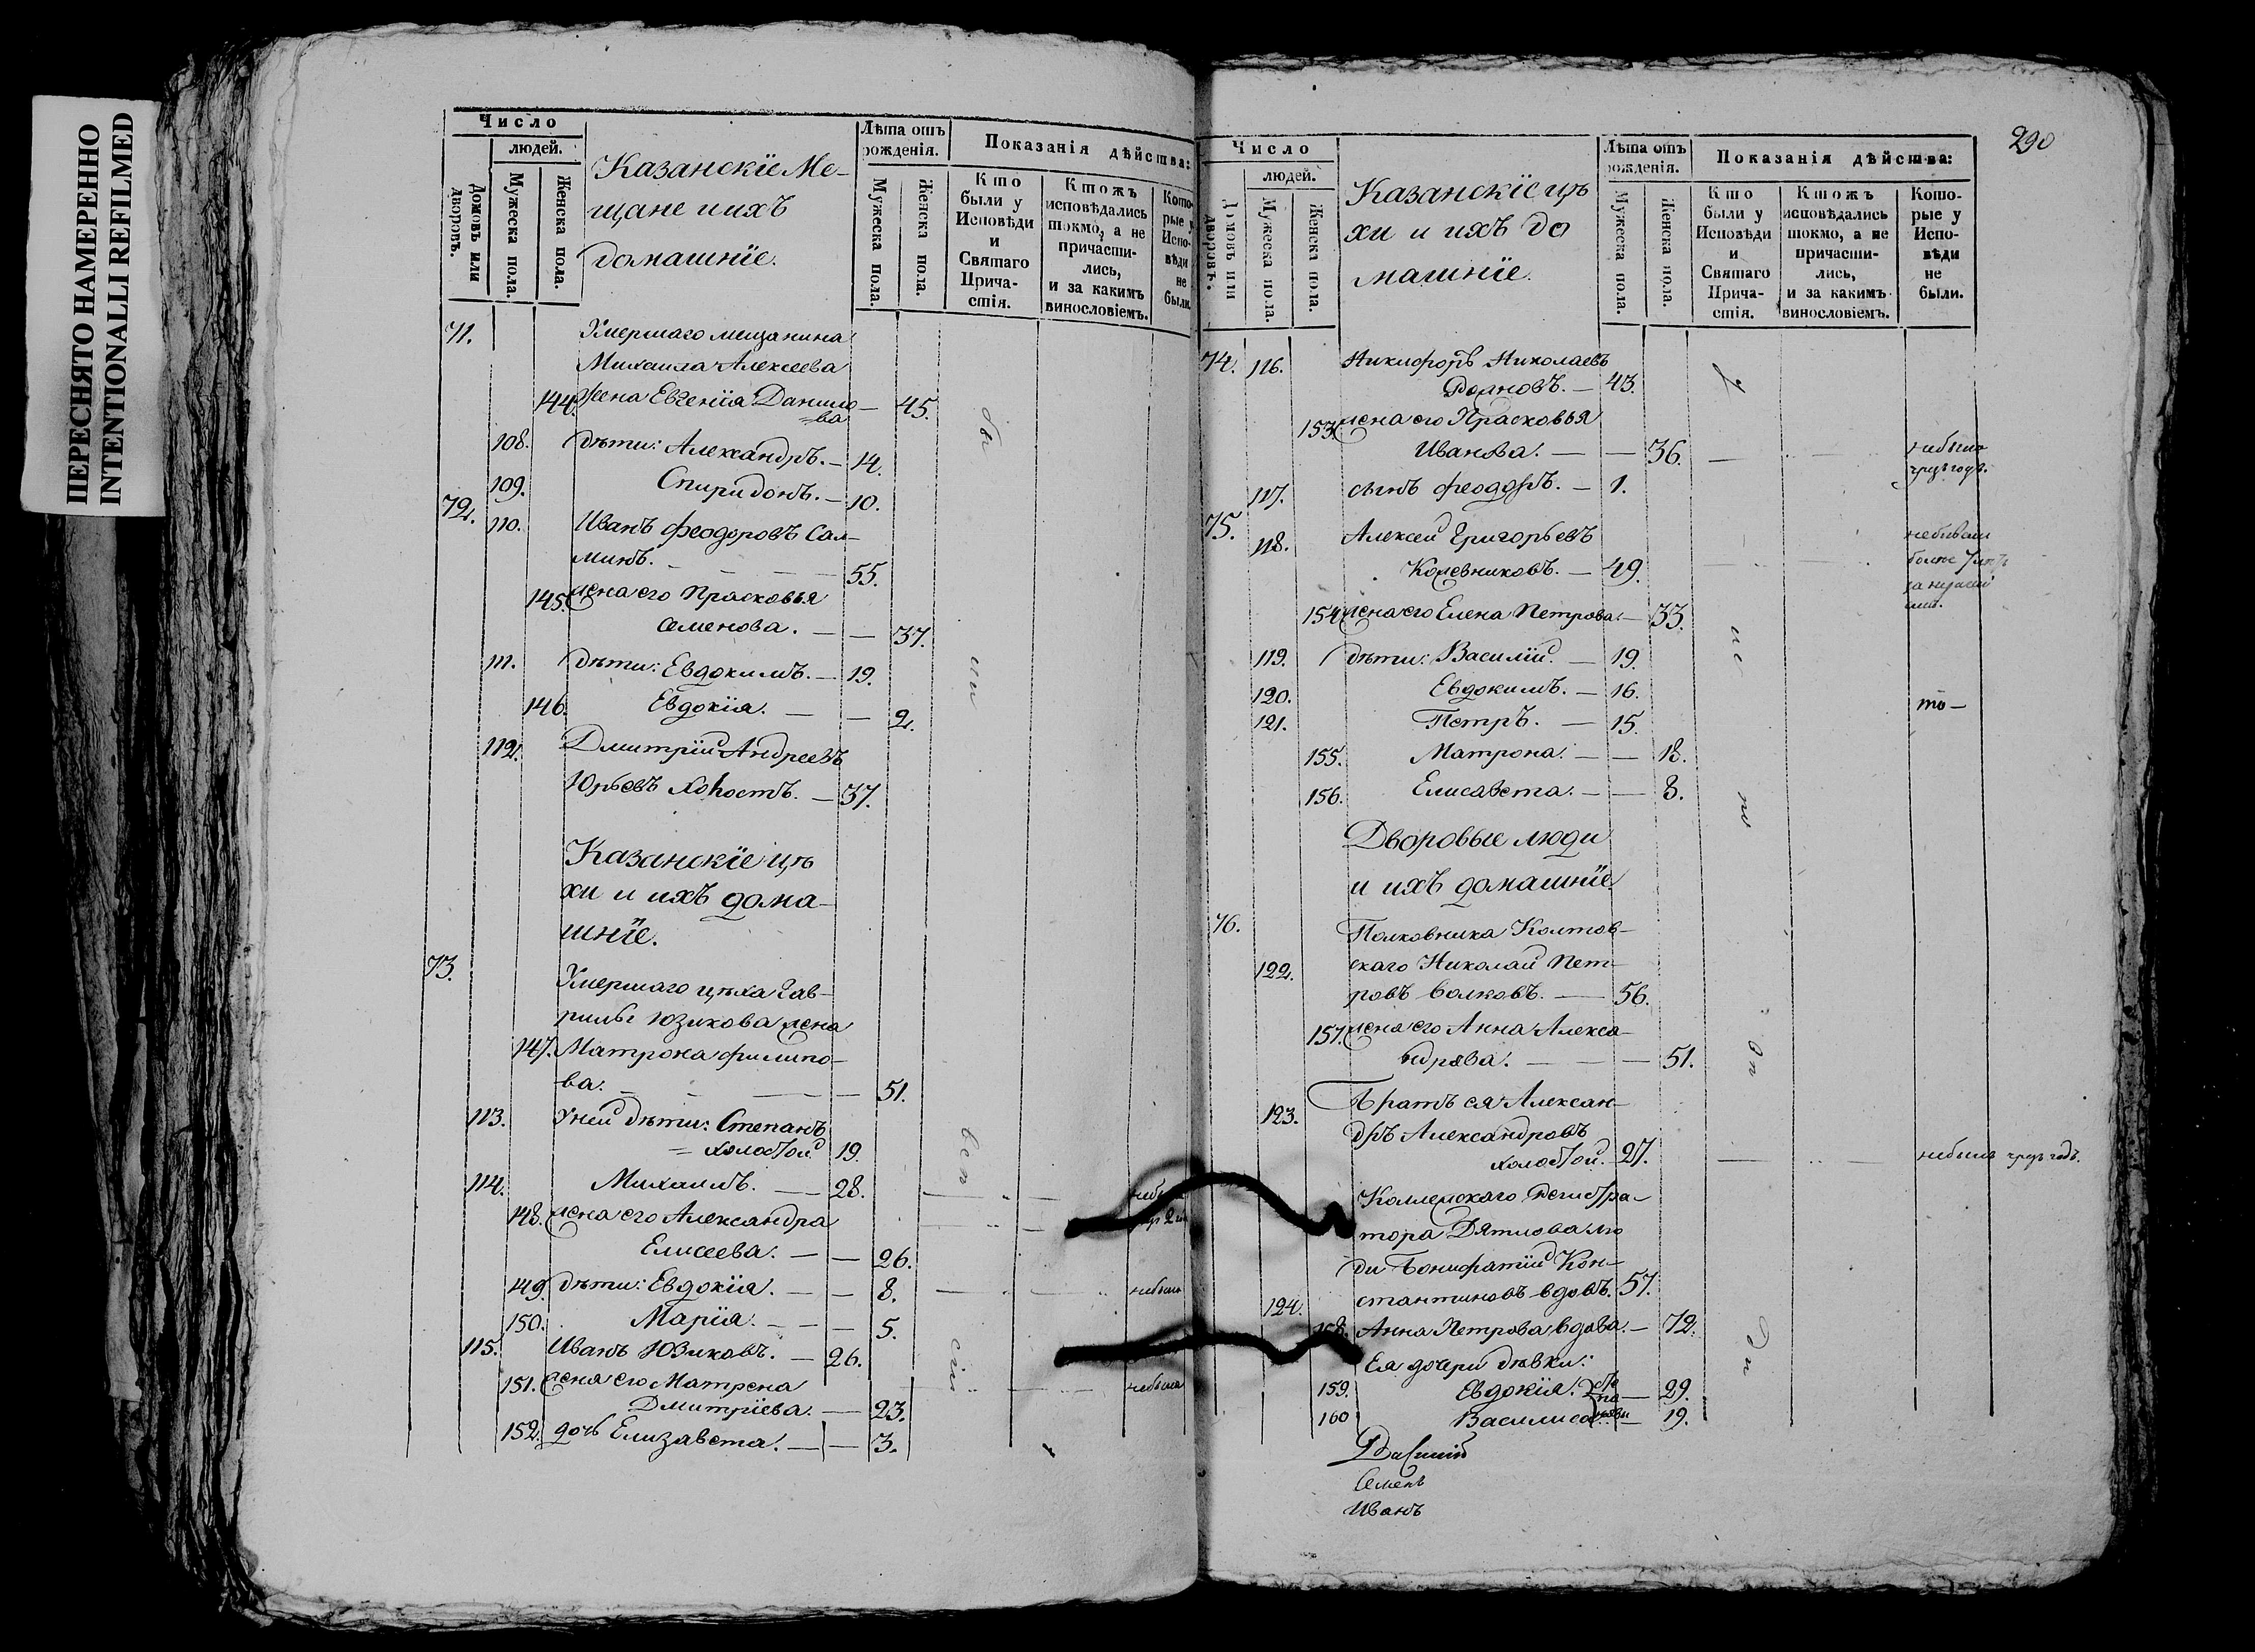 ПЕРЕСНЯТО НАМЕРЕННО
INTENTIONALLI REFILMED
Число
людей.
Домовъ или дворовъ.
Мужеска пола.
Женска пола.
Казанскіе Ме-
щане и ихъ
домашніе.
Лѣта отъ рожденія.
Мужеска пола.
Женска пола.
Показанія дѣйства:
Кто были у Исповѣди и Святаго Прича-стія.
Ктожъ исповѣдались токмо, а не причасти-лись, и за какимъ винословіемъ.
Кото-рые у Испо-вѣди не были.
71. Умершаго мещанина
Михаила Алексеева
144. жена Евгенія Данило- 45.
=ва
108. дѣти: Александръ. — 14.
109. Спиридонъ. — 10.
72. 110. Иванъ Феодоровъ Сал-
минъ. — 55.
145. жена его Прасковья
Семенова. — 37.
111. дѣти: Евдокимъ. — 19.
146. Евдокія. — 2.
112. Дмитрій Андреевъ
Юрьевъ холостъ. — 37.
Казанскіе цѣ
хи и ихъ дома-
шніе.
73. Умершаго цѣха Гав-
рилы Юзикова жена
147. Матрона Филипо-
ва. — 51.
113. У ней дѣти: Степанъ
= холостой 19.
114. Михаилъ. — 28.
148. жена его Александра
Елисеева. — 26.
149. дѣти: Евдокія. — 8. небыли
150. Марія. — 5.
115. Иванъ Юзиковъ. — 26.
151. жена его Матрена небыла
Дмитріева. — 23.
152. дочь Елизавета. — 3.
290
Число
людей.
Домовъ или дворовъ.
Мужеска пола.
Женска пола.
Казанскіе цѣ
хи и ихъ до
машніе.
Лѣта отъ рожденія.
Мужеска пола.
Женска пола.
Показанія дѣйства:
Кто были у Исповѣди и Святаго Прича-стія.
Ктожъ исповѣдались токмо, а не причасти-лись, и за какимъ винословіемъ.
Кото-рые у Испо-вѣди не были.
74. 116. Никифоръ Николаевъ
43.
153. жена его Прасковья
Иванова. — 36. небыла
чрезъ годъ.
117. сынъ Феодоръ. — 1.
75. 118. Алексей Григорьевъ небывали
Кожевниковъ. — 49. более
154. жена его Елена Петрова. — 33.
119. дѣти: Василій. — 19.
120. Евдокимъ. — 16. то —
121. Петръ. — 15.
155. Матрона. — 18.
156. Елисавета. — 8.
Дворовые люди
и ихъ домашніе
76. Полковника Колтов-
122. скаго Николай Пет-
ровъ Волковъ. — 56.
157. жена его Анна Алекса-
ндрова. — 51.
123. Братъ ея Алексан-
дръ Александровъ
холостой. — 27. небылъ чрезъ годъ.
Коллежскаго Регистра-
тора Дятлова лю
ди Бонифатій Кон-
124. стантиновъ вдовъ. 57.
158. Анна Петрова вдова. — 72.
Ея дочери дѣвки:
159. Евдокія. — 29.
160 Василиса. — 19.
Семенъ
Иванъ